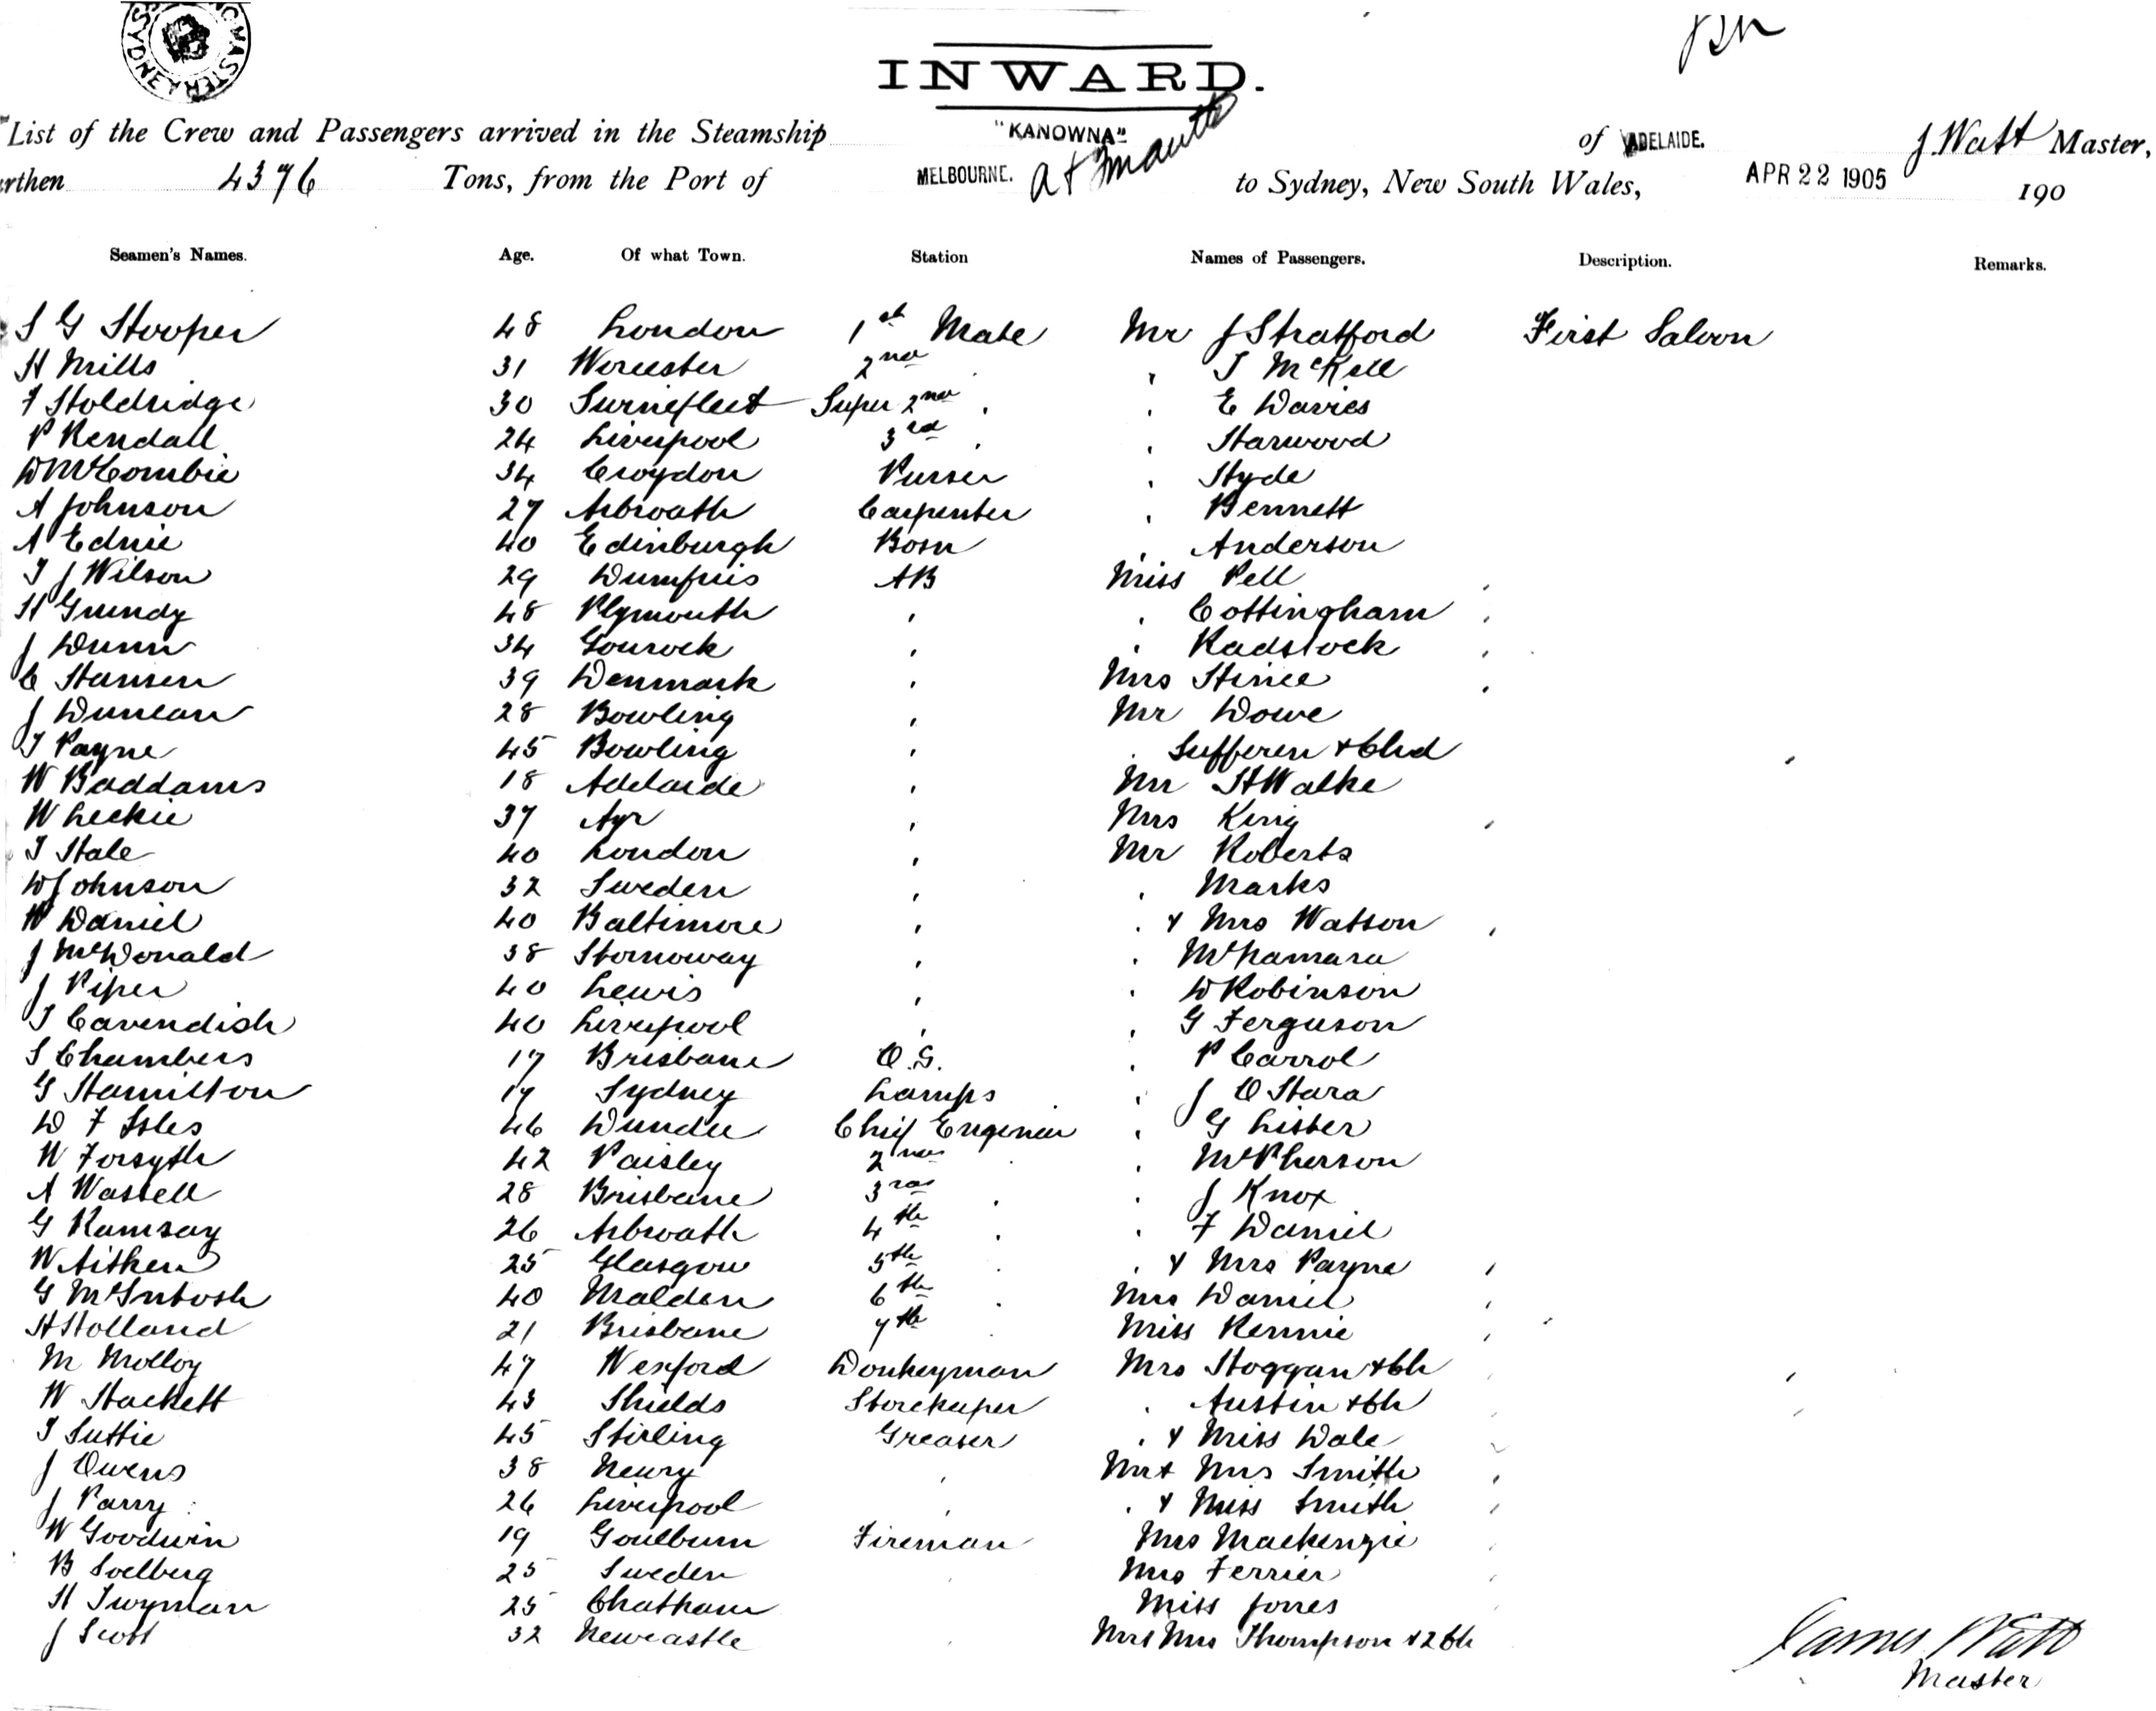 INWARD.
List of the Crew and Passengers arrived in the Steamship "KANOWNA" of ADELAIDE. J. Watt Master,
rthen 4376 Tons, from the Port of MELBOURNE. to Sydney, New South Wales, APR 22 1905 190
Seamen's Names. Age. Of what Town. Station Names of Passengers. Description. Remarks.
S G Hooper 48 London 1st Mate Mr J Stratford First Saloon
H Mills 31 Worcester 2nd " T McKell
F Holdridge 30 Surnefleet Super 2nd " " E Davies
P Kendall 24 Liverpool 3rd " " Harwood
D McCombie 34 Croydon Purser " Hyde
A Johnson 27 Arbroath Carpenter " Bennett
A Ednie 40 Edinburgh Bosn " Anderson
T J Wilson 29 Dumfries AB Miss Pell
H Grundy 48 Plymouth " " Cottingham
J Dunn 34 Gourock " " Radstock
C Hansen 39 Denmark " Mrs Hince
J Duncan 28 Bowling " Mr Dowe
T Payne 45 Bowling " " Sufferen + Chd
W Baddams 18 Adelaide " Mr H Walke
W Leckie 37 Ayr " Mrs King
T Hale 40 London " Mr Roberts
W Johnson 32 Sweden " " Marks
W Daniel 40 Baltimore " " & Mrs Watson
J McDonald 38 Stornoway " " McNamara
J Piper 40 Lewis " " W Robinson
T Cavendish 40 Liverpool " " G Ferguson
S Chambers 17 Brisbane O.S. " P Carrol
G Hamilton 19 Sydney Lamps " J O Hara
D F Isles 46 Dundee Chief Engineer " G Lister
W Forsyth 42 Paisley 2nd " " McPherson
A Wassell 28 Brisbane 3rd " " J Knox
G Ramsay 26 Arbroath 4th " " F Daniel
W Aitken 25 Glasgow 5th " " & Mrs Payne
G McIntosh 40 Malden 6th " Mrs Daniel
H Holland 21 Brisbane 7th " Miss Rennie
M Molloy 47 Wexford Donkeyman Mrs Hoggan + Ch
W Hackett 43 Shields Storekeeper " Austin + Ch
T Suttie 45 Stirling Greaser " & Miss Dale
J Owens 38 Newry " Mr + Mrs Smith
J Parry 26 Liverpool " & Miss Smith
W Goodwin 19 Goulburn Fireman Mrs Mackenzie
B Soelberg 25 Sweden " Mrs Ferrier
H Twyman 25 Chatham Miss Jones
J Scott 32 Newcastle " Mr & Mrs Thompson + 2 Ch
James Watt
Master